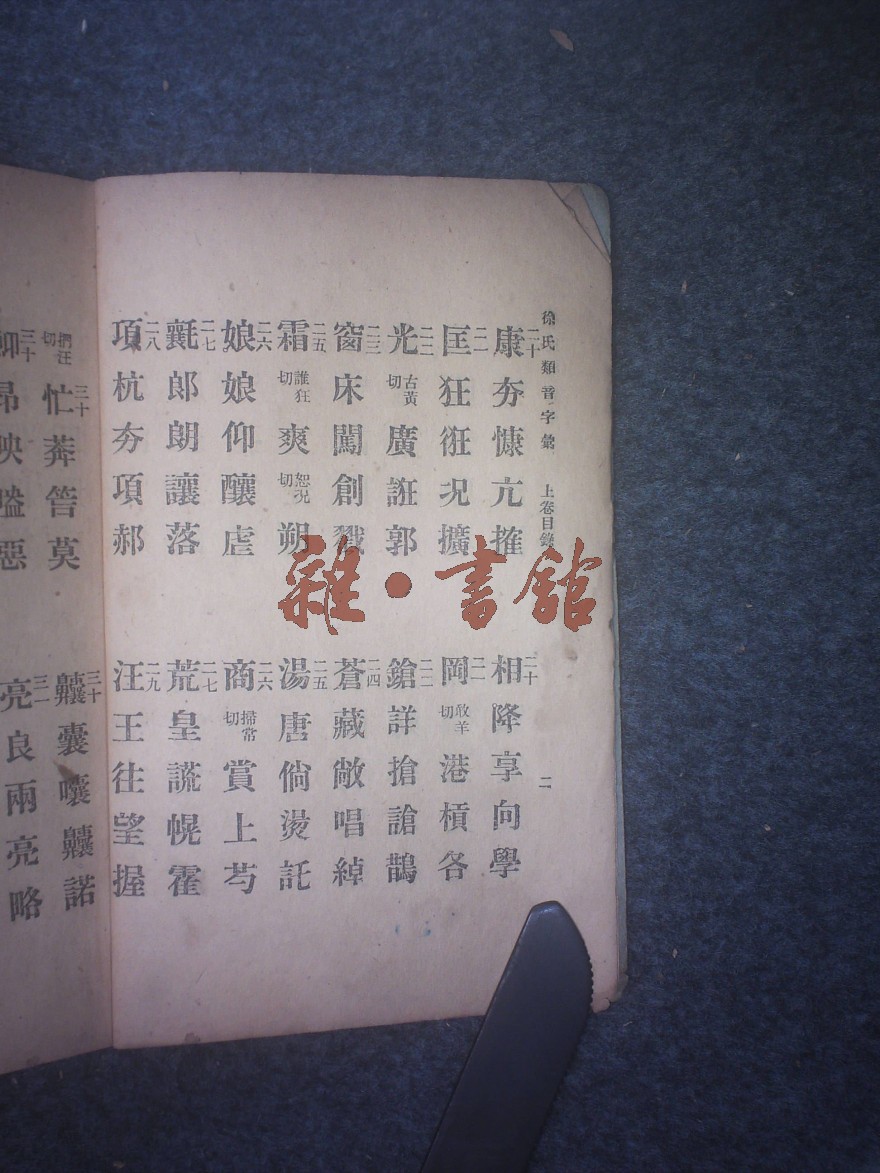 徐氏類音字彙 上卷目錄 二
康二十夯慷亢搉
相二十降享向學
匡二一狂俇况擴
岡二一敢羊切港槓各
光二二古黃切廣誑郭
鎗二二詳搶謒鵲
窗二三床闖創戳
蒼二四藏敞唱綽
霜二五誰狂切爽恕况切朔
湯二五唐倘燙託
娘二六娘仰釀虐
商二六掃常切賞上芍
囊二七郎朗讓落
荒二七皇謊幌霍
項二八杭夯項郝
汪二九王往望握
捫汪切三十忙莽莫
三十囊囔諾
三十昂映嗌惡
亮三一良兩亮略
雜·書館